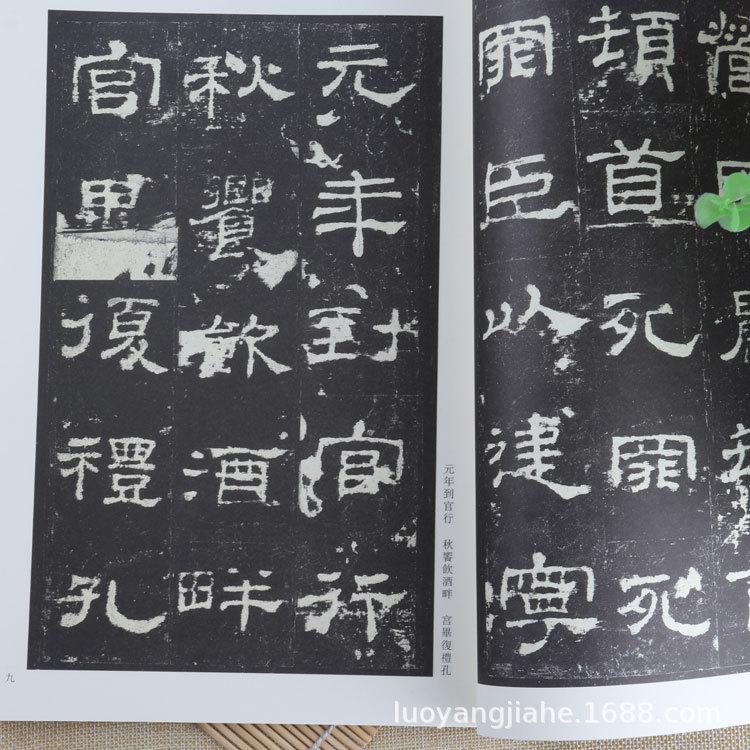 頓首死罪死
罪臣以建寧
元年到官行
秋饗飲酒畔
宮畢復禮孔
元年到官行 秋饗飲酒畔 宮畢復禮孔
九
luoyangjiahe.1688.com